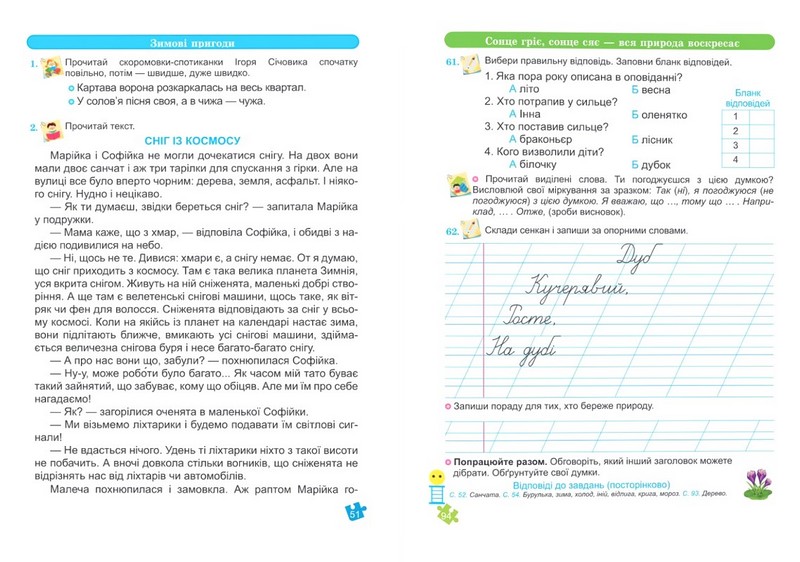 Зимові пригоди
1. Прочитай скоромовки-спотиканки Ігоря Січовика спочатку
повільно, потім — швидше, дуже швидко.
Картава ворона розкаркалась на весь квартал.
У солов'я пісня своя, а в чижа — чужа.
2. Прочитай текст.
СНІГ ІЗ КОСМОСУ
Марійка і Софійка не могли дочекатися снігу. На двох вони
мали двоє санчат і аж три тарілки для спускання з гірки. Але на
вулиці все було вперто чорним: дерева, земля, асфальт. І ніяко-
го снігу. Нудно і нецікаво.
— Як ти думаєш, звідки береться сніг? — запитала Марійка
у подружки.
— Мама каже, що з хмар, — відповіла Софійка, і обидві з на-
дією подивилися на небо.
— Ні, щось не те. Дивися: хмари є, а снігу немає. От я думаю,
що сніг приходить з космосу. Там є така велика планета Зимнія,
уся вкрита снігом. Живуть на ній сніженята, маленькі добрі ство-
ріння. А ще там є велетенські снігові машини, щось таке, як віт-
ряк чи фен для волосся. Сніженята відповідають за сніг у всьо-
му космосі. Коли на якійсь із планет на календарі настає зима,
вони підлітають ближче, вмикають усі снігові машини, здійма-
ється величезна снігова буря і несе багато-багато снігу.
— А про нас вони що, забули? — похнюпилася Софійка.
— Ну-у, може роботи було багато... Як часом мій тато буває
такий зайнятий, що забуває, кому що обіцяв. Але ми їм про себе
нагадаємо!
— Як? — загорілися оченята в маленької Софійки.
— Ми візьмемо ліхтарики і будемо подавати їм світлові сиг-
нали!
— Не вдасться нічого. Удень ті ліхтарики ніхто з такої висоти
не побачить. А вночі довкола стільки вогників, що сніженята не
відрізнять нас від ліхтарів чи автомобілів.
Малеча похнюпилася і замовкла. Аж раптом Марійка го-
51
Сонце гріє, сонце сяє — вся природа воскресає
61. Вибери правильну відповідь. Заповни бланк відповідей.
1. Яка пора року описана в оповіданні?
А літо Б весна
2. Хто потрапив у сильце?
А Інна Б оленятко
3. Хто поставив сильце?
А браконьєр Б лісник
4. Кого визволили діти?
А білочку Б дубок
Бланк
відповідей
1
2
3
4
Прочитай виділені слова. Ти погоджуєшся з цією думкою?
Висловлюй свої міркування за зразком: Так (ні), я погоджуюся (не
погоджуюся) з цією думкою. Я вважаю, що ..., тому що ... . Напри-
клад, ... . Отже, (зроби висновок).
62. Склади сенкан і запиши за опорними словами.
Дуб
Кучерявий,
Росте,
На дубі
Запиши пораду для тих, хто береже природу.
Попрацюйте разом. Обговоріть, який інший заголовок можете
дібрати. Обґрунтуйте свої думки.
Відповіді до завдань (посторінково)
С. 52. Санчата. С. 54. Бурулька, зима, холод, іній, відлига, крига, мороз. С. 93. Дерево.
94